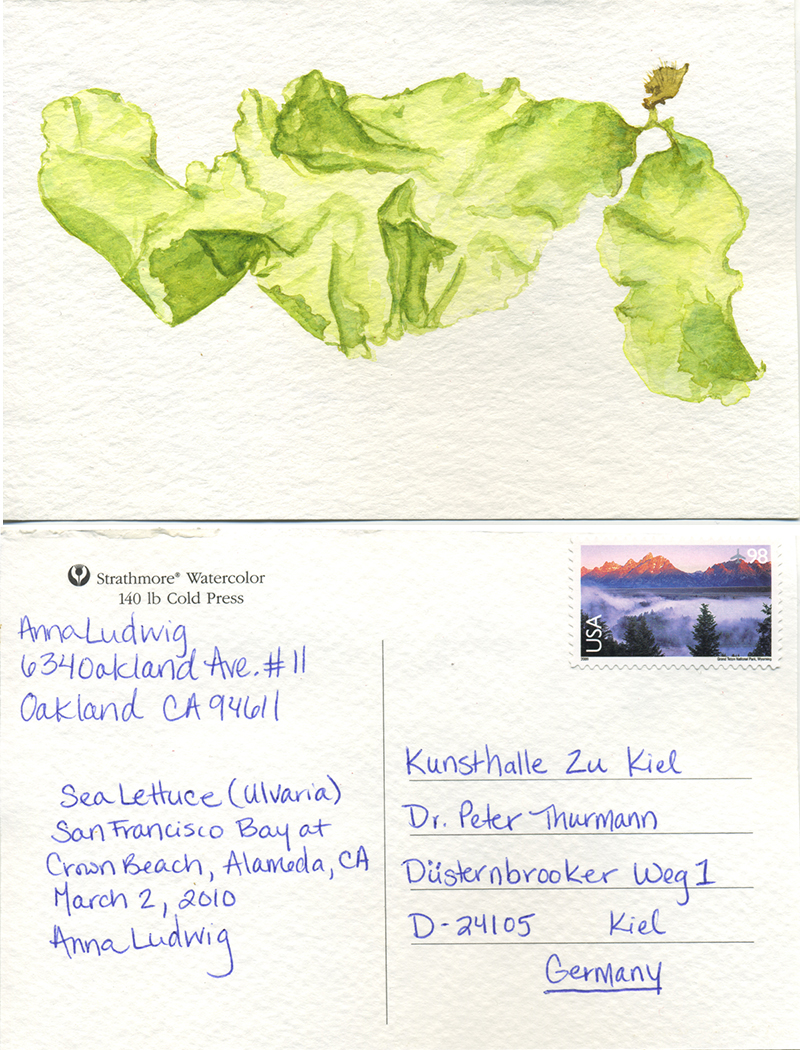 Strathmore® Watercolor
140 lb Cold Press
Anna Ludwig
634 Oakland Ave. #11
Oakland CA 94611
Sea Lettuce (Ulvaria)
San Francisco Bay at
Crown Beach, Alameda, CA
March 2, 2010
Anna Ludwig
98
USA
Grand Teton National Park, Wyoming
Kunsthalle Zu Kiel
Dr. Peter Thurmann
Düsternbrooker Weg 1
D-24105 Kiel
Germany